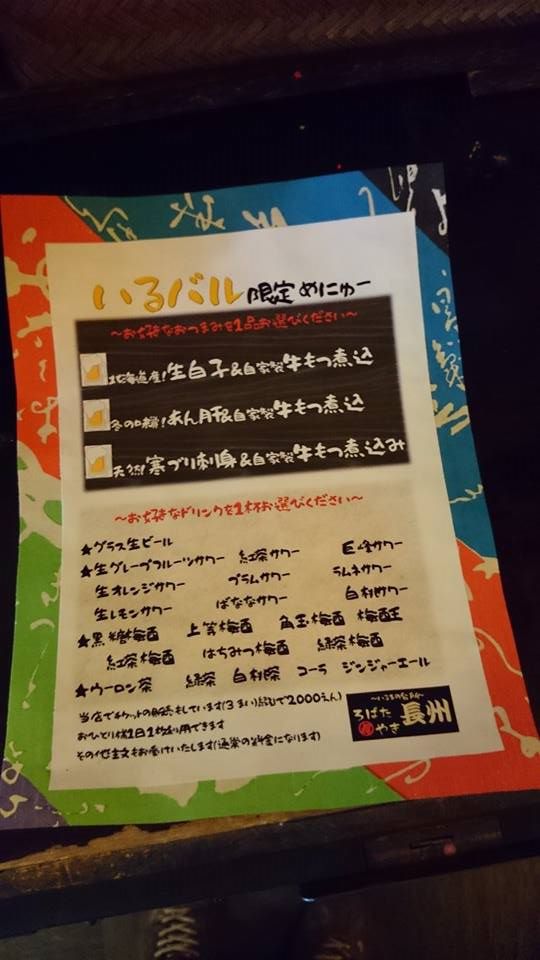 いるバル 限定めにゅー
～お好きなおつまみを1品お選びください～
北海道産!生白子&自家製牛もつ煮込
冬の味!あん肝&自家製牛もつ煮込
天然!寒ブリ刺身&自家製牛もつ煮込み
～お好きなドリンクを1杯お選びください～
★グラス生ビール
★生グレープフルーツサワー 紅茶サワー 巨峰サワー
生オレンジサワー プラムサワー ラムネサワー
生レモンサワー ばななサワー 白桃サワー
★黒糖梅酒 上等梅酒 角玉梅酒 梅酒王
紅茶梅酒 はちみつ梅酒 緑茶梅酒
★ウーロン茶 緑茶 白桃茶 コーラ ジンジャーエール
当店でチケットの販売もしています(3まいつづりで2000えん)
おひとり様1日1枚利用できます
その他注文もお受けいたします(通常の料金になります)
～いるまの台所～
ろばた
やき
長州